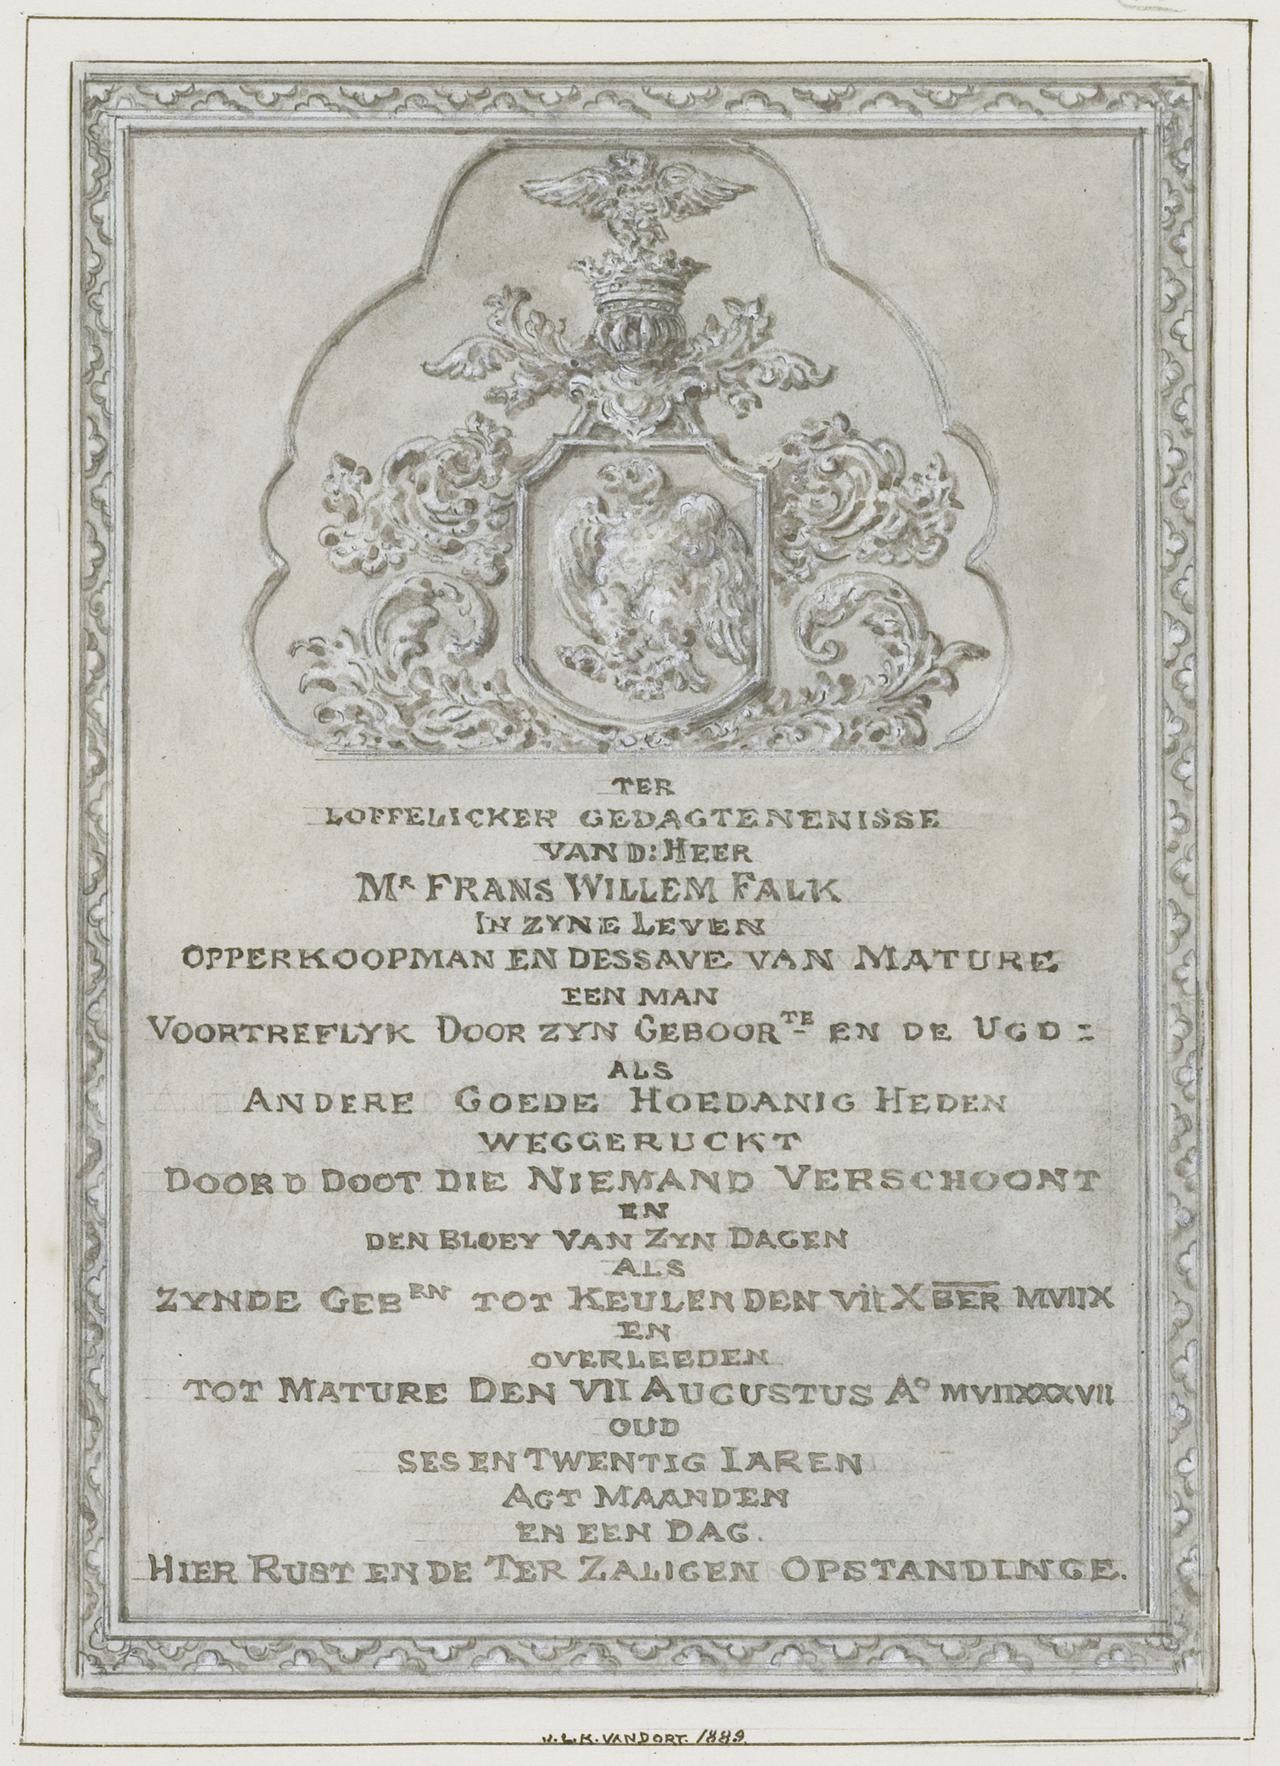 TER
LOFFELICKER GEDAGTENENISSE
VAN D: HEER
MR FRANS WILLEM FALK
IN ZYNE LEVEN
OPPERKOOPMAN EN DESSAVE VAN MATURE
EEN MAN
VOORTREFLYK DOOR ZYN GEBOORTE EN DE UGD:
ALS
ANDERE GOEDE HOEDANIG HEDEN
WEGGERUCKT
DOOR D DOOT DIE NIEMAND VERSCHOONT
EN
DEN BLOEY VAN ZYN DAGEN
ALS
ZYNDE GEBRN TOT KEULEN DEN VII XBER MVIIX
EN
OVERLEEDEN
TOT MATURE DEN VII AUGUSTUS Ao MVIIXXXVII
OUD
SES EN TWENTIG IAREN
AGT MAANDEN
EN EEN DAG.
HIER RUST EN DE TER ZALIGEN OPSTANDINGE.
J.L.K. VAN DORT. 1889.